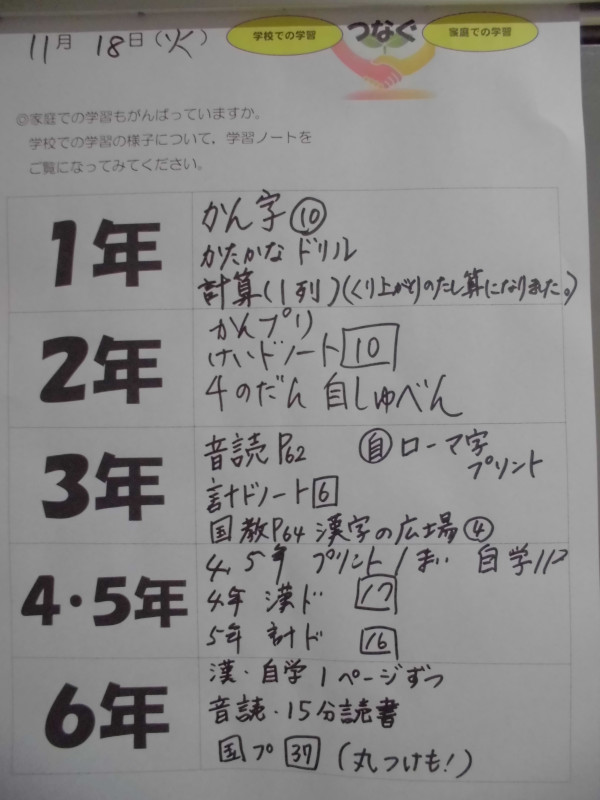 11月 18日(火)
学校での学習
つなぐ
家庭での学習
◎家庭での学習もがんばっていますか。
学校での学習の様子について，学習ノートを
ご覧になってみてください。
1年
かん字⑩
かたかなドリル
計算(1列)(くり上がりのたし算になりました。)
2年
かんプリ
けいドノート 10
4のだん 自しゅべん
3年
音読P62 自 ローマ字
プリント
計ドノート 6
国 教P64 漢字の広場④
4・5年
4、5年 プリント1まい 自学1P
4年 漢ド 17
5年 計ド 16
6年
漢・自学1ページずつ
音読・15分読書
国プ 37 (丸つけも!)